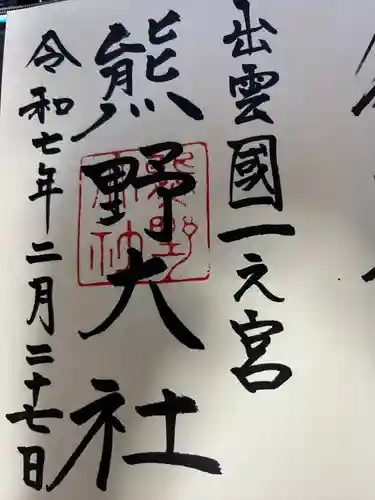 出雲國一之宮
熊野大社
令和七年二月二十七日
熊野大社